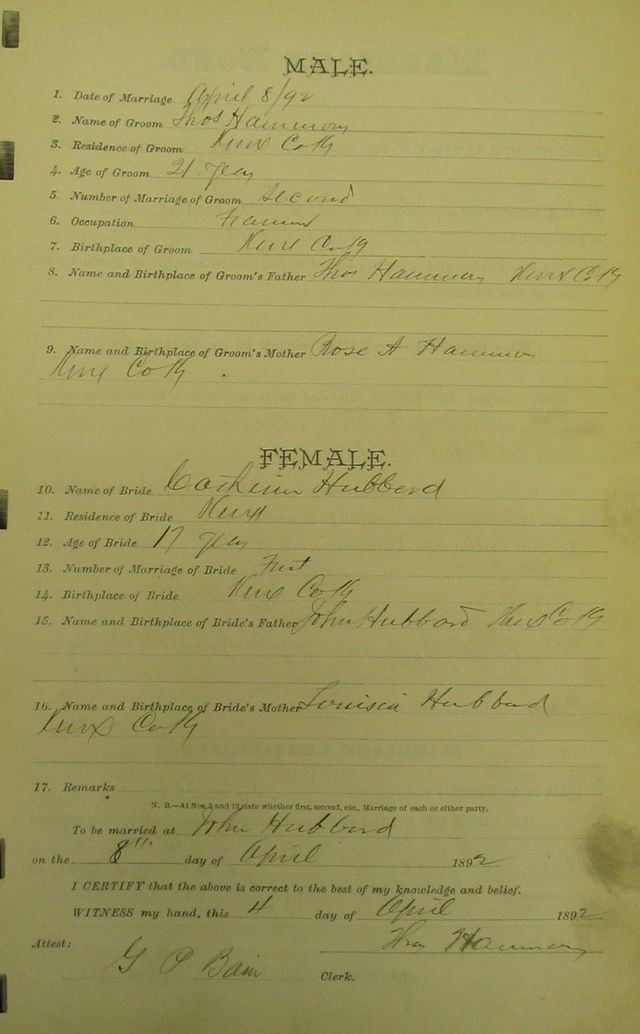 MALE.
1. Date of Marriage April 8/92
2. Name of Groom Thos Hammons
3. Residence of Groom Knox Co Ky
4. Age of Groom 21 years
5. Number of Marriage of Groom Second
6. Occupation Farmer
7. Birthplace of Groom Knox Co Ky
8. Name and Birthplace of Groom's Father Thos Hammons Knox Co Ky
9. Name and Birthplace of Groom's Mother Rose A Hammons
Knox Co Ky
FEMALE.
10. Name of Bride Hubbard
11. Residence of Bride Knox
12. Age of Bride 17 years
13. Number of Marriage of Bride First
14. Birthplace of Bride Knox Co Ky
15. Name and Birthplace of Bride's Father John Hubbard Knox Co Ky
16. Name and Birthplace of Bride's Mother Hubbard
Knox Co Ky
17. Remarks
N. B.—At Nos. 5 and 13 state whether first, second, etc., Marriage of each or either party.
To be married at John Hubbard
on the 8th day of April 1892
I CERTIFY that the above is correct to the best of my knowledge and belief.
WITNESS my hand, this 4 day of April 1892
Thos Hammons
Attest:
G P Bain Clerk.